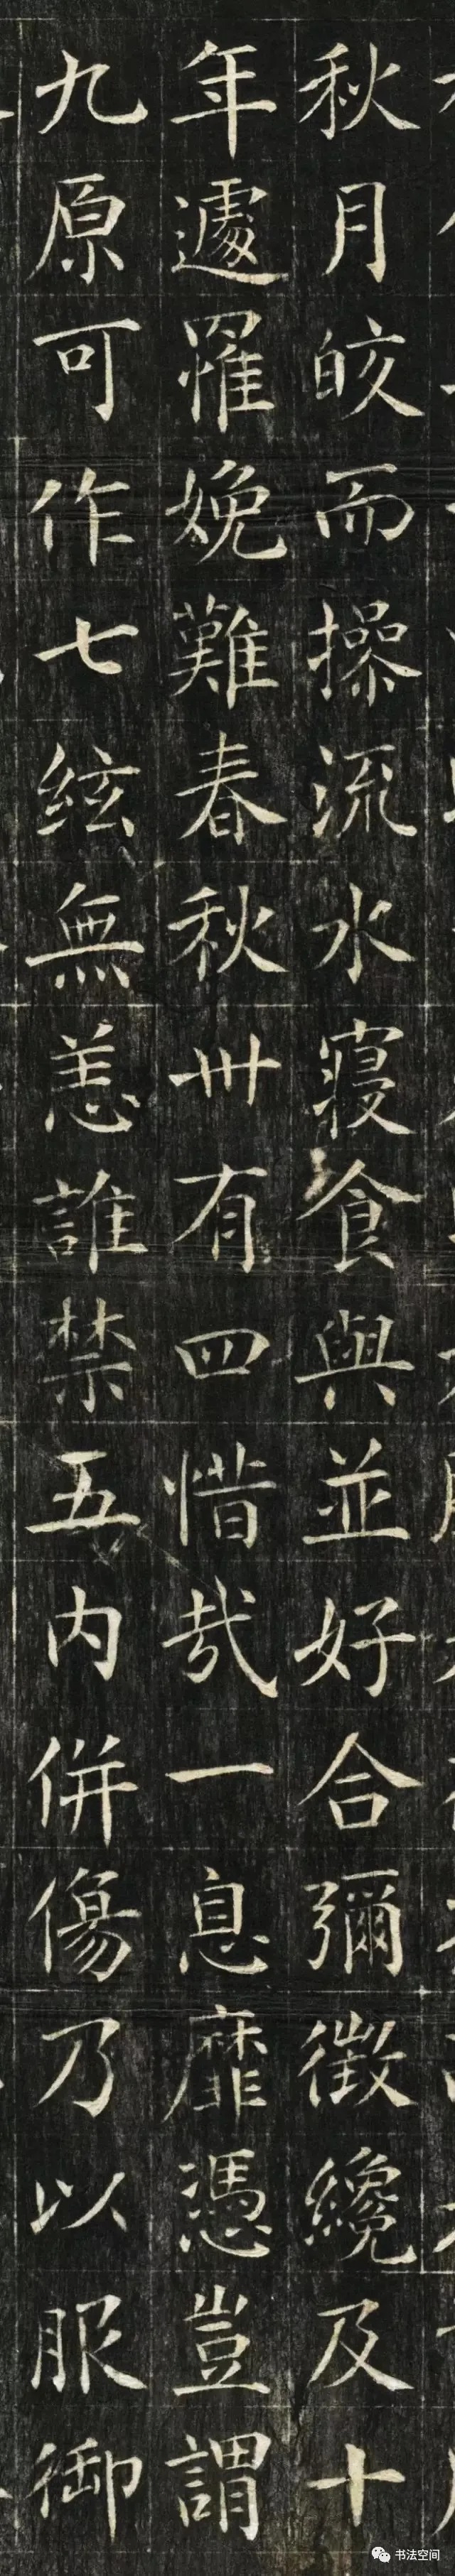 秋月皎而操流水寝食與並好合彌徴纔及十
年遽罹娩難春秋卅有四惜哉一息靡憑豈謂
九原可作七絃無恙誰禁五内併傷乃以服御
书法空间